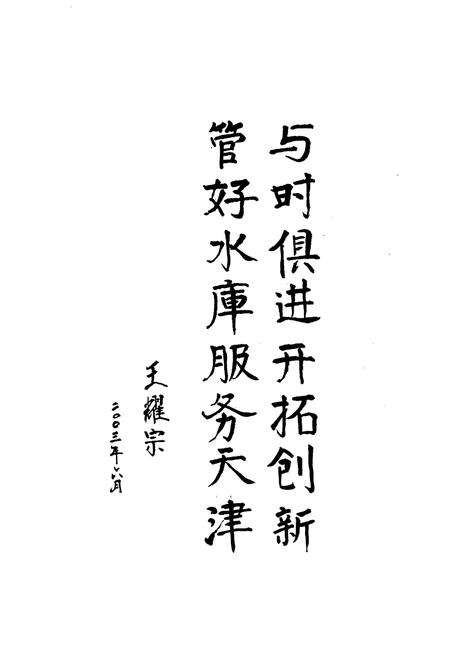 与时俱进开拓创新
管好水庫服务天津
王耀宗
二00三年六月